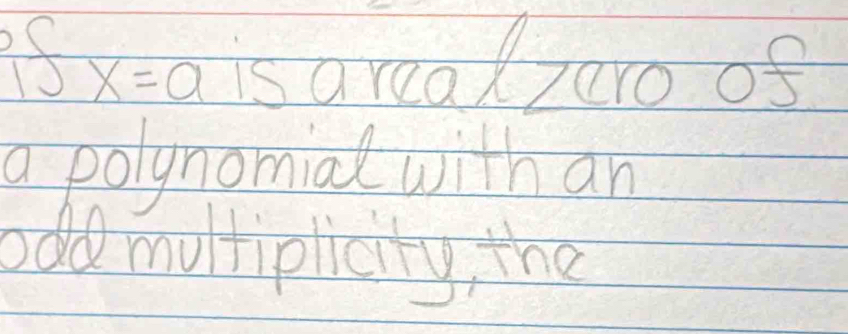 if x=a is a real zero of
a polynomial with an
odd multiplicity, the